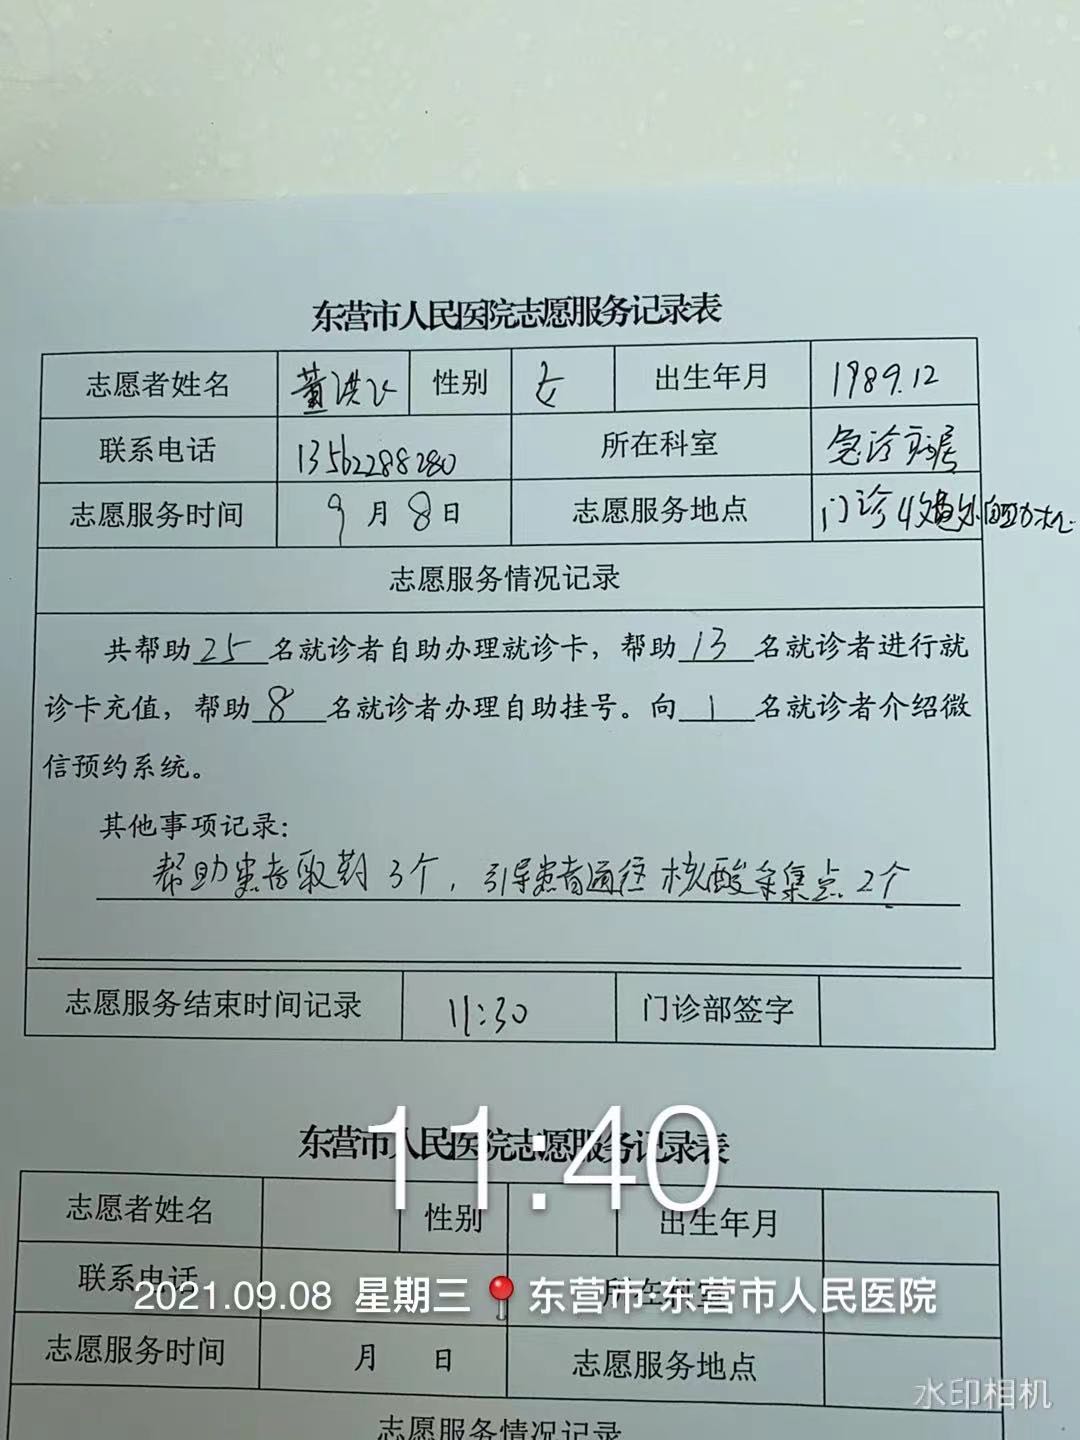 东营市人民医院志愿服务记录表
志愿者姓名 董洪 性别 女 出生年月 1989.12
联系电话 13562288280 所在科室 急诊
志愿服务时间 9月8日 志愿服务地点 门诊收费处自助机
志愿服务情况记录
共帮助25名就诊者自助办理就诊卡，帮助13名就诊者进行就
诊卡充值，帮助8名就诊者办理自助挂号。向1名就诊者介绍微
信预约系统。
其他事项记录：
帮助患者取 3个，引导患者 核酸采集点2个
志愿服务结束时间记录 11:30 门诊部签字
东营市人民医院志愿服务记录表
11:40
志愿者姓名 性别 出生年月
联系电话 所在科室
2021.09.08 星期三 东营市·东营市人民医院
志愿服务时间 月 日 志愿服务地点
水印相机
志愿服务情况记录